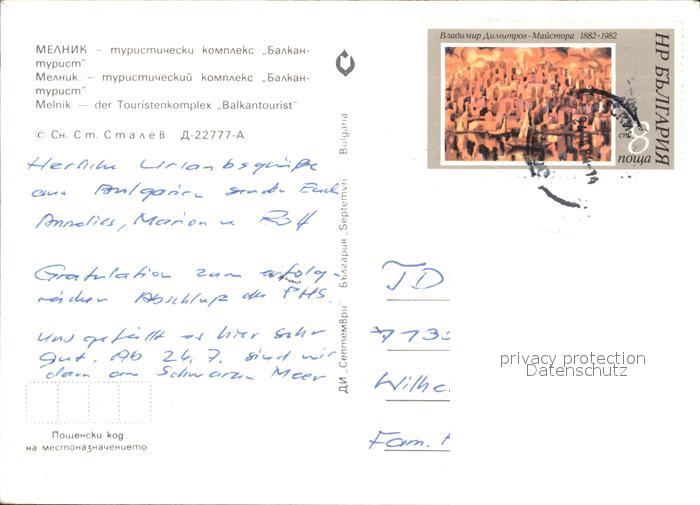 МЕЛНИК – туристически комплекс „Балкан-
турист"
Мелник – туристический комплекс „Балкан-
турист"
Melnik – der Touristenkomplex „Balkantourist"
© Сн. Ст. Сталев Д-22777-А
Herzliche Urlaubsgrüße
aus Bulgarien senden Euch
Annelies, Marion u. Rolf
Gratulation zum erfolg-
reichen Abschluß der PHS.
Uns gefällt es hier sehr
gut. Ab 26.7. sind wir
dann am Schwarzen Meer
Пощенски код
на местоназначението
ДИ „Септември" България „Septemvri" Bulgaria
Владимир Димитров-Майстора 1882·1982
НР БЪЛГАРИЯ
8
ст.
поща
JD
Wilhe
Fam.
privacy protection
Datenschutz